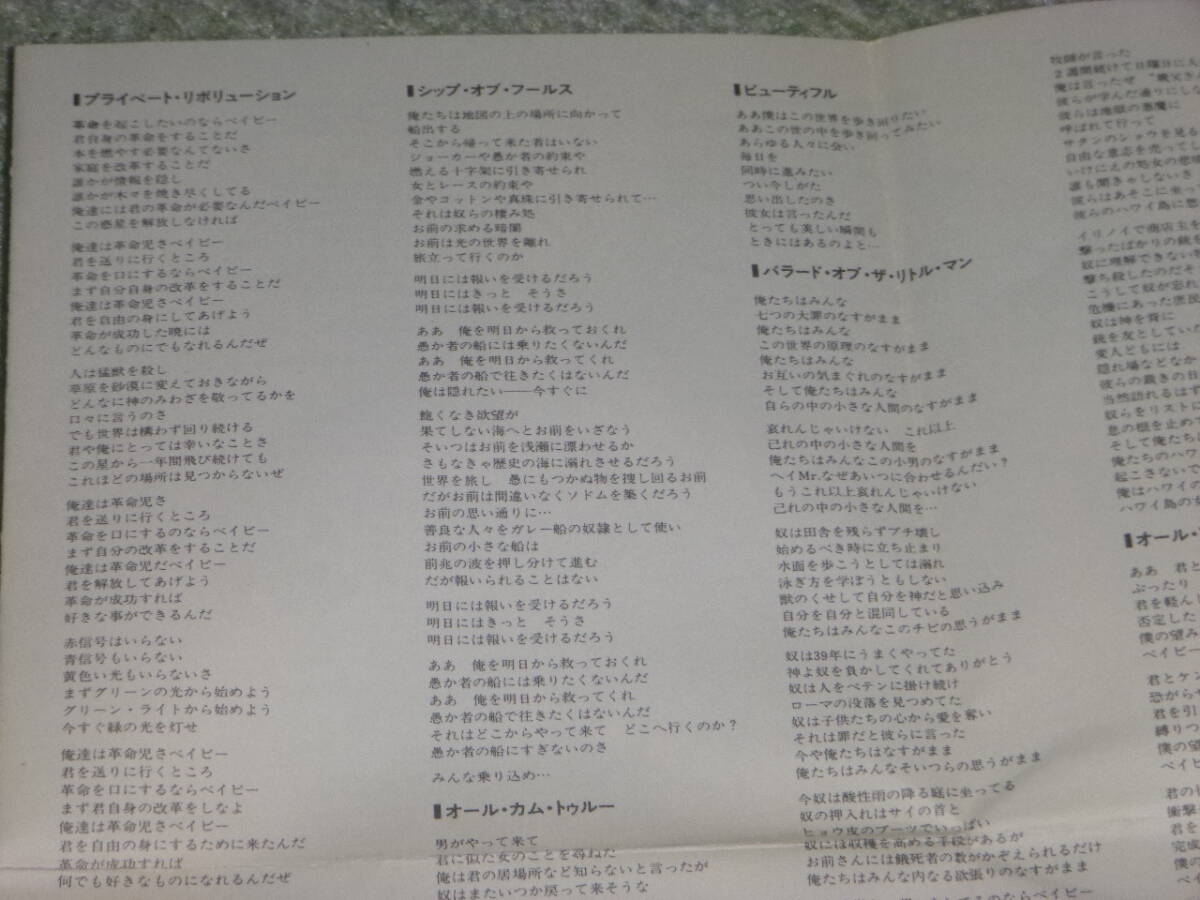 ▌プライベート・リボリューション
革命を起こしたいのならベイビー
君自身の革命をすることだ
本を燃やす必要なんてないさ
家庭を改革することだ
誰かが情報を隠し
誰かが木々を焼き尽くしてる
俺達には君の革命が必要なんだベイビー
この惑星を解放しなければ
俺達は革命児さベイビー
君を送りに行くところ
革命を口にするならベイビー
まず自分自身の改革をすることだ
俺達は革命児さベイビー
君を自由の身にしてあげよう
革命が成功した暁には
どんなものにでもなれるんだぜ
人は猛獣を殺し
草原を砂漠に変えておきながら
どんなに神のみわざを敬ってるかを
口々に言うのさ
でも世界は構わず回り続ける
君や俺にとっては幸いなことさ
この星から一年間飛び続けても
これほどの場所は見つからないぜ
俺達は革命児さ
君を送りに行くところ
革命を口にするのならベイビー
まず自分の改革をすることだ
俺達は革命児だベイビー
君を解放してあげよう
革命が成功すれば
好きな事ができるんだ
赤信号はいらない
青信号もいらない
黄色い光もいらないさ
まずグリーンの光から始めよう
グリーン・ライトから始めよう
今すぐ緑の光を灯せ
俺達は革命児さベイビー
君を送りに行くところ
革命を口にするならベイビー
まず君自身の改革をしなよ
俺達は革命児さベイビー
君を自由の身にするために来たんだ
革命が成功すれば
何でも好きなものになれるんだぜ
▌シップ・オブ・フールス
俺たちは地図の上の場所に向かって
船出する
そこから帰って来た者はいない
ジョーカーや愚か者の約束や
燃える十字架に引き寄せられ
女とレースの約束や
金やコットンや真珠に引き寄せられて…
それは奴らの棲み処
お前の求める暗闇
お前は光の世界を離れ
旅立って行くのか
明日には報いを受けるだろう
明日にはきっと そうさ
明日には報いを受けるだろう
ああ 俺を明日から救っておくれ
愚か者の船には乗りたくないんだ
ああ 俺を明日から救ってくれ
愚か者の船で往きたくはないんだ
俺は隠れたい――今すぐに
飽くなき欲望が
果てしない海へとお前をいざなう
そいつはお前を浅瀬に漂わせるか
さもなきゃ歴史の海に溺れさせるだろう
世界を旅し 愚にもつかぬ物を捜し回るお前
だがお前は間違いなくソドムを築くだろう
お前の思い通りに…
善良な人々をガレー船の奴隷として使い
お前の小さな船は
前兆の波を押し分けて進む
だが報いられることはない
明日には報いを受けるだろう
明日にはきっと そうさ
明日には報いを受けるだろう
ああ 俺を明日から救っておくれ
愚か者の船には乗りたくないんだ
ああ 俺を明日から救ってくれ
愚か者の船で往きたくはないんだ
それはどこからやって来て どこへ行くのか？
愚か者の船にすぎないのさ
みんな乗り込め…
▌オール・カム・トゥルー
男がやって来て
君に似た女のことを尋ねた
俺は君の居場所など知らないと言ったが
奴はまたいつか戻って来そうな
▌ビューティフル
ああ僕はこの世界を歩き回りたい
ああこの世の中を歩き回ってみたい
あらゆる人々に会い
毎日を
同時に進みたい
つい今しがた
思い出したのさ
彼女は言ったんだ
とっても美しい瞬間も
ときにはあるのよと…
▌バラード・オブ・ザ・リトル・マン
俺たちはみんな
七つの大罪のなすがまま
俺たちはみんな
この世界の原理のなすがまま
俺たちはみんな
お互いの気まぐれのなすがまま
そして俺たちはみんな
自らの中の小さな人間のなすがまま
哀れんじゃいけない これ以上
己れの中の小さな人間を
俺たちはみんなこの小男のなすがまま
ヘイMr.なぜあいつに合わせるんだい？
もうこれ以上哀れんじゃいけない
己れの中の小さな人間を…
奴は田舎を残らずブチ壊し
始めるべき時に立ち止まり
水面を歩こうとしては溺れ
泳ぎ方を学ぼうともしない
獣のくせして自分を神だと思い込み
自分を自分と混同している
俺たちはみんなこのチビの思うがまま
奴は39年にうまくやってた
神よ奴を負かしてくれてありがとう
奴は人をペテンに掛け続け
ローマの没落を見つめてた
奴は子供たちの心から愛を奪い
それは罪だと彼らに言った
今や俺たちはなすがまま
俺たちはみんなそいつらの思うがまま
今奴は酸性雨の降る庭に坐ってる
奴の押入れはサイの首と
ヒョウ皮のブーツでいっぱい
奴には収穫を高める手段があるが
お前さんには餓死者の数がかぞえられるだけ
俺たちはみんな内なる欲張りのなすがまま
牧師が言った
2週間続けて日曜日に人
俺は言ったぜ
彼らが学んだ通りにしな
彼らは地獄の悪魔に
呼ばれて行って
サタンのショウを見る
自由な意志を売ってし
いけにえの処女の悲
誰も聞きゃしないさ
彼らはあそこに坐っ
彼らのハワイ島に思
イリノイで商店主を
撃ったばかりの銃
奴に理解できない
撃ち殺したのだそ
こうして奴が忘れ
危機にあった庶民
奴は神を背に
銃を友としてい
変人どもには
隠れ場などなか
彼らの裁きの日
当然訪れるはず
奴らをリスト
息の根を止めて
そして俺たち
俺たちのハワ
起こさないで
俺はハワイの
ハワイ島の
▌オール・
ああ 君と
ぶったり
君を軽ん
否定した
僕の望み
ベイビー
君とケン
恐がら
君を引
縛りつ
僕の望
ベイビ
君の
衝撃
君を
完成
僕の
ベイ